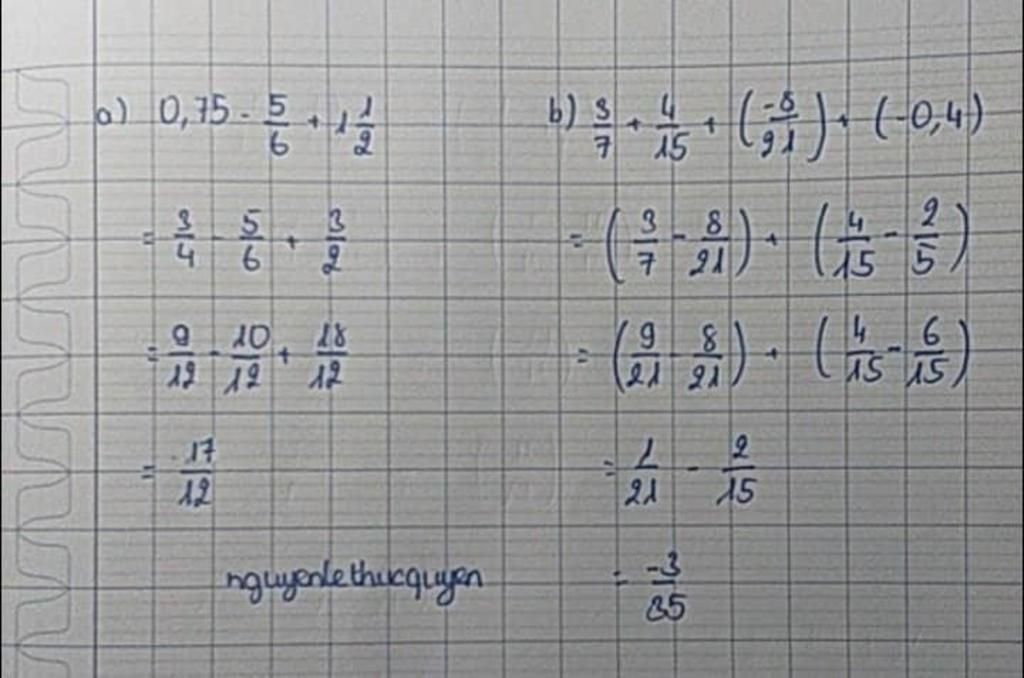 a) 0,75 - 5/6 + 1 1/2
= 3/4 - 5/6 + 3/2
= 9/12 - 10/12 + 18/12
= 17/12
nguyenlethucquyen
b) 3/7 + 4/15 + (-8/21) + (-0,4)
= (3/7 - 8/21) + (4/15 - 2/5)
= (9/21 - 8/21) + (4/15 - 6/15)
= 1/21 - 2/15
= -3/35